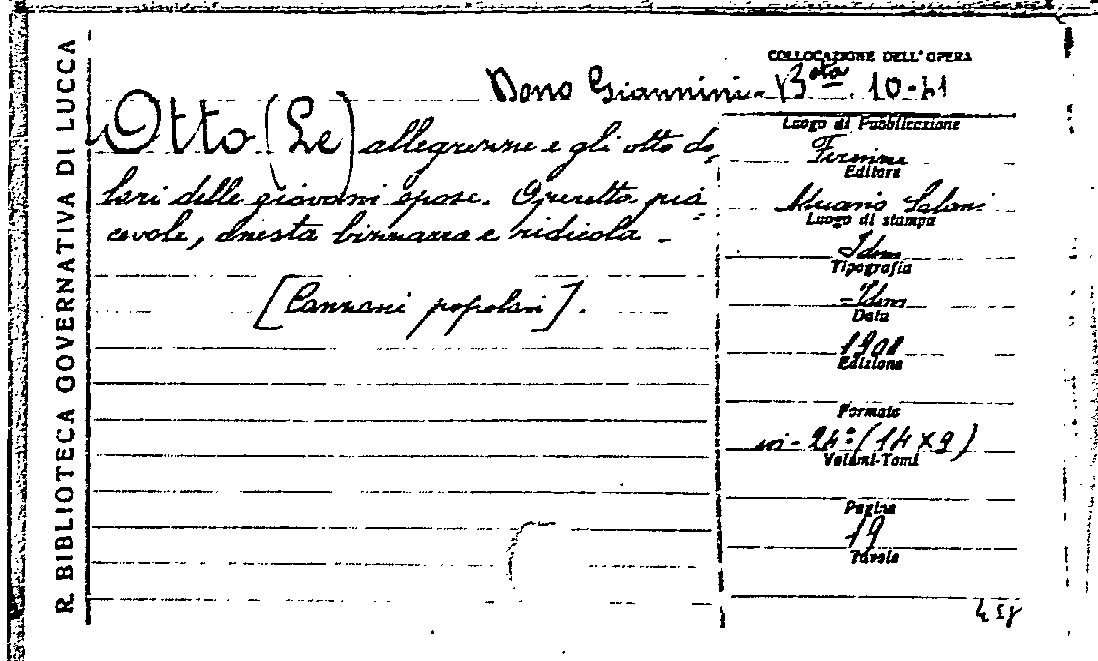 R. BIBLIOTECA GOVERNATIVA DI LUCCA
COLLOCAZIONE DELL'OPERA
Dono Giannini - Bsta 10-41
Otto (Le) allegrezze e gli otto do-
lori delle giovani spose. Operetta pia-
cevole, onesta bizzarra e ridicola -
[Canzoni popolari].
Luogo di Pubblicazione
Firenze
Editore
Adriano Salani
Luogo di stampa
Idem
Tipografia
Idem
Data
1908
Edizione
Formato
in-24° (14 x 9)
Volumi-Tomi
Pagine
19
Tavole